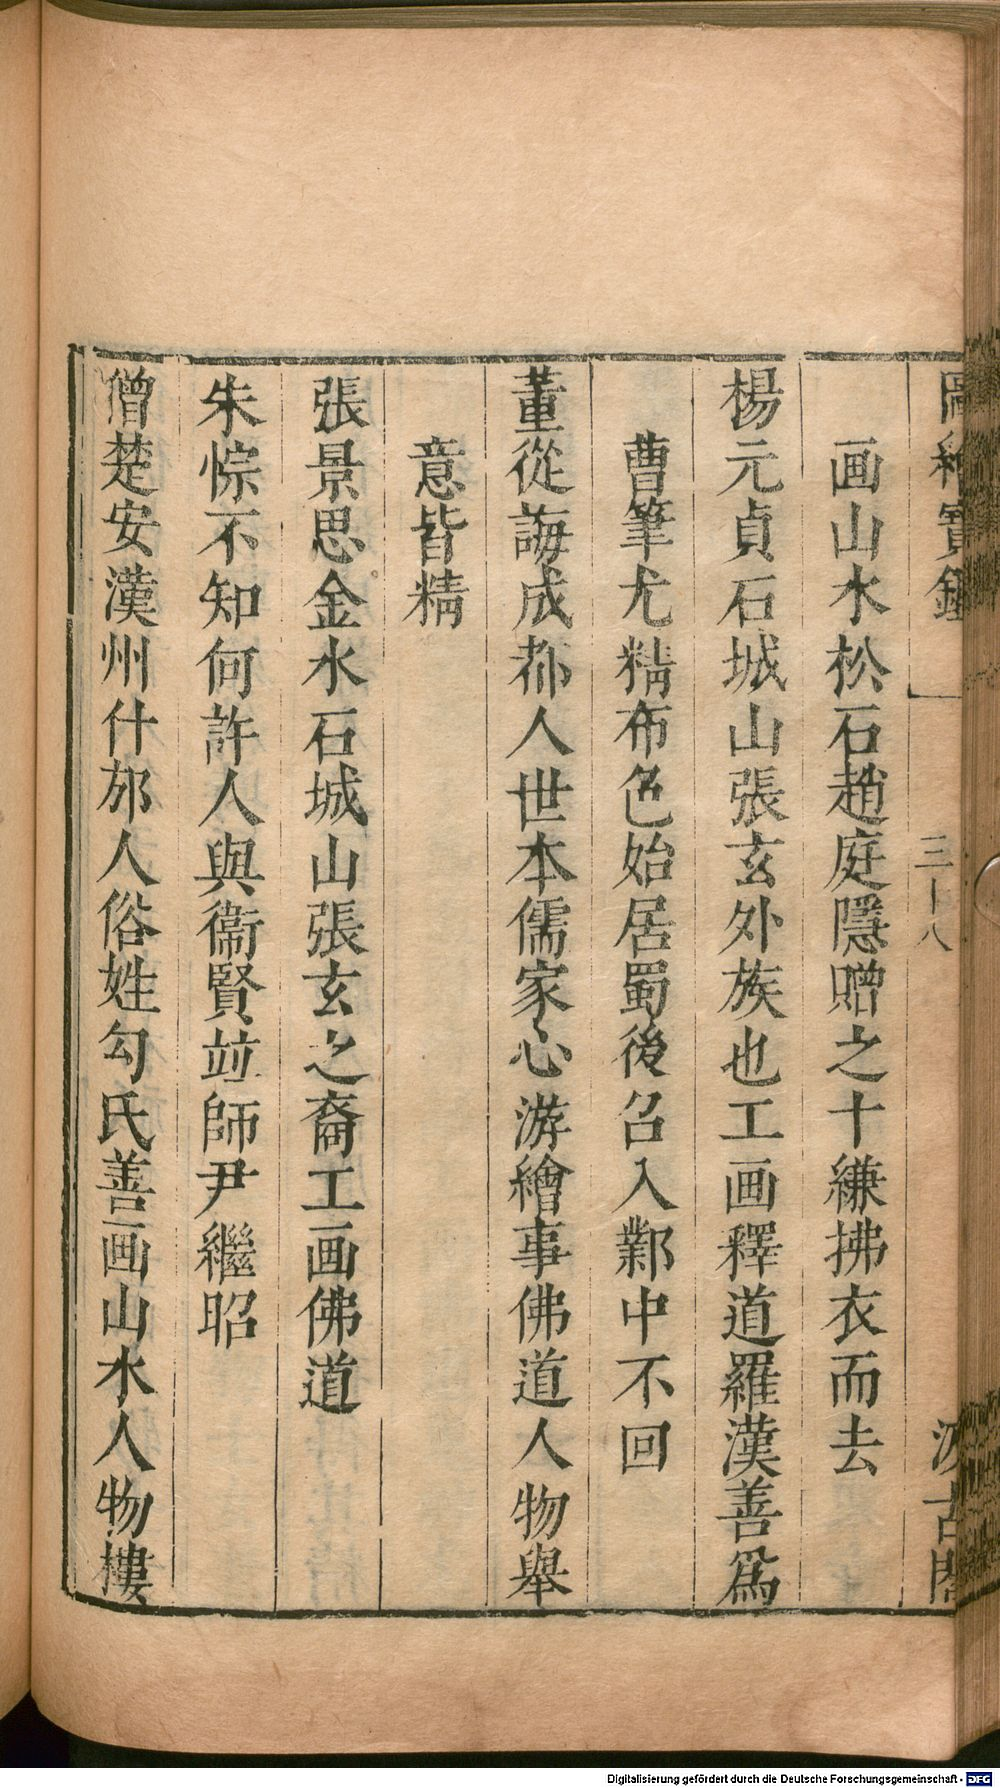 圖繪寶鑑
三十八
汲古閣
画山水松石趙庭隱贈之十縑拂衣而去
楊元貞石城山張玄外族也工画釋道羅漢善爲
曹筆尤精布色始居蜀後召入鄴中不回
董從誨成都人世本儒家心游繪事佛道人物舉
意皆精
張景思金水石城山張玄之裔工画佛道
朱悰不知何許人與衞賢竝師尹繼昭
僧楚安漢州什邡人俗姓勾氏善画山水人物樓
Digitalisierung gefördert durch die Deutsche Forschungsgemeinschaft - DFG